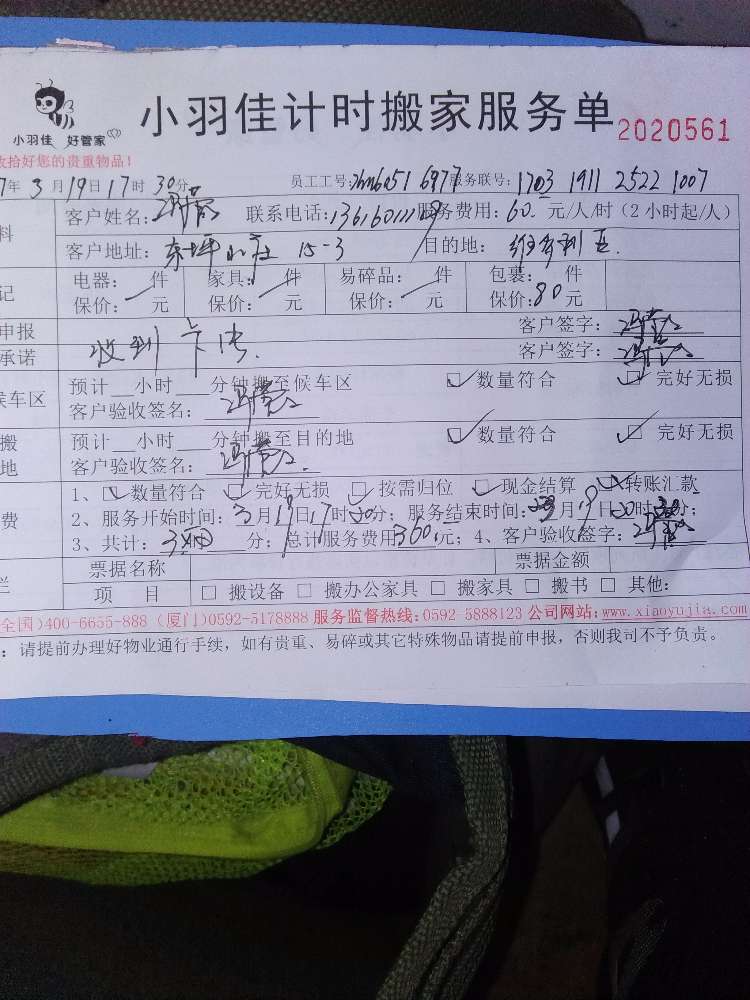 小羽佳计时搬家服务单 2020561
小羽佳 好管家
收拾好您的贵重物品！
7年3月19日17时30分 员工工号: 服务联号：1703 1911 2522 1007
客户姓名： 联系电话： 服务费用：60 元/人/时（2小时起/人）
料
客户地址：东坪山庄 15-3 目的地：
电器： 件 家具： 件 易碎品： 件 包裹： 件
记
保价： 元 保价： 元 保价： 元 保价：80元
申报 客户签字：
承诺 收到 客户签字：
候车区 预计__小时___分钟搬至候车区 数量符合 完好无损
客户验收签名：
搬 预计__小时___分钟搬至目的地 数量符合 完好无损
地 客户验收签名：
1、 数量符合 完好无损 按需归位 现金结算 转账汇款
费 2、服务开始时间：3月19日17时30分；服务结束时间： 月19日 时 分；
3、共计： 分；总计服务费用360元；4、客户验收签字：
票据名称 票据金额
栏
项 目 搬设备 搬办公家具 搬家具 搬书 其他：
全国)400-6655-888 (厦门)0592-5178888 服务监督热线:0592-5888123 公司网站:www.xiaoyujia.com
：请提前办理好物业通行手续，如有贵重、易碎或其它特殊物品请提前申报，否则我司不予负责。